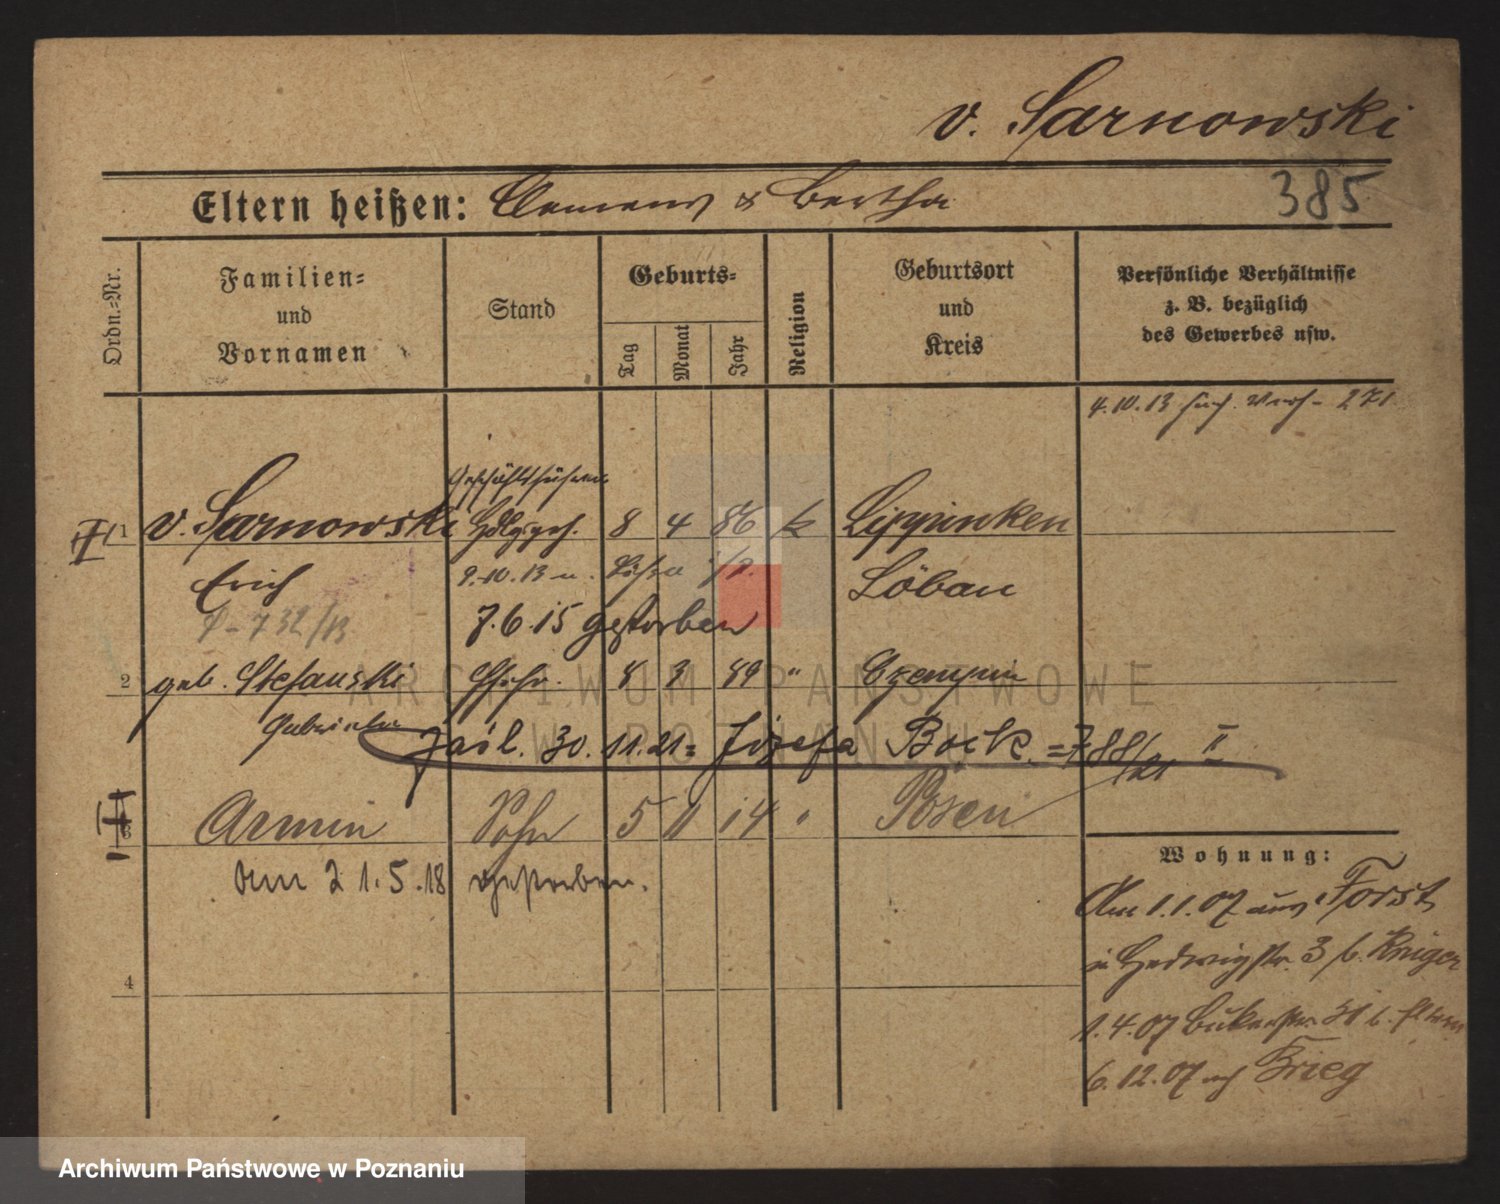 v. Sarnowski
Eltern heißen: Clemens & Bertha
385
Ordn.-Nr.
Familien- und Vornamen
Stand
Geburts-
Tag
Monat
Jahr
Religion
Geburtsort und Kreis
Persönliche Verhältnisse z. B. bezüglich des Gewerbes usw.
4.10.13 271
Geschäftsführer
1 v. Sarnowski Hdlgsgeh. 8 4 86 k Lippinken
Erich 9.10.13 Löbau
7.6.15 gestorben
2 geb. Stefanski Ehefr. 8 3 89 " Czempin
Gabriela
30.11.21 = Józefa Bock = 788/21 II
3 Armin Sohn 5 11 14 " Posen
am 21.5.18 gestorben.
4
Wohnung:
Am 1.1.07 aus Forst
Hedwigstr. 3 b. Kniger
1.4.07 Bukerstr. 31 b. Eltern
6.12.07 nach Brieg
ARCHIWUM PAŃSTWOWE
W POZNANIU
Archiwum Państwowe w Poznaniu